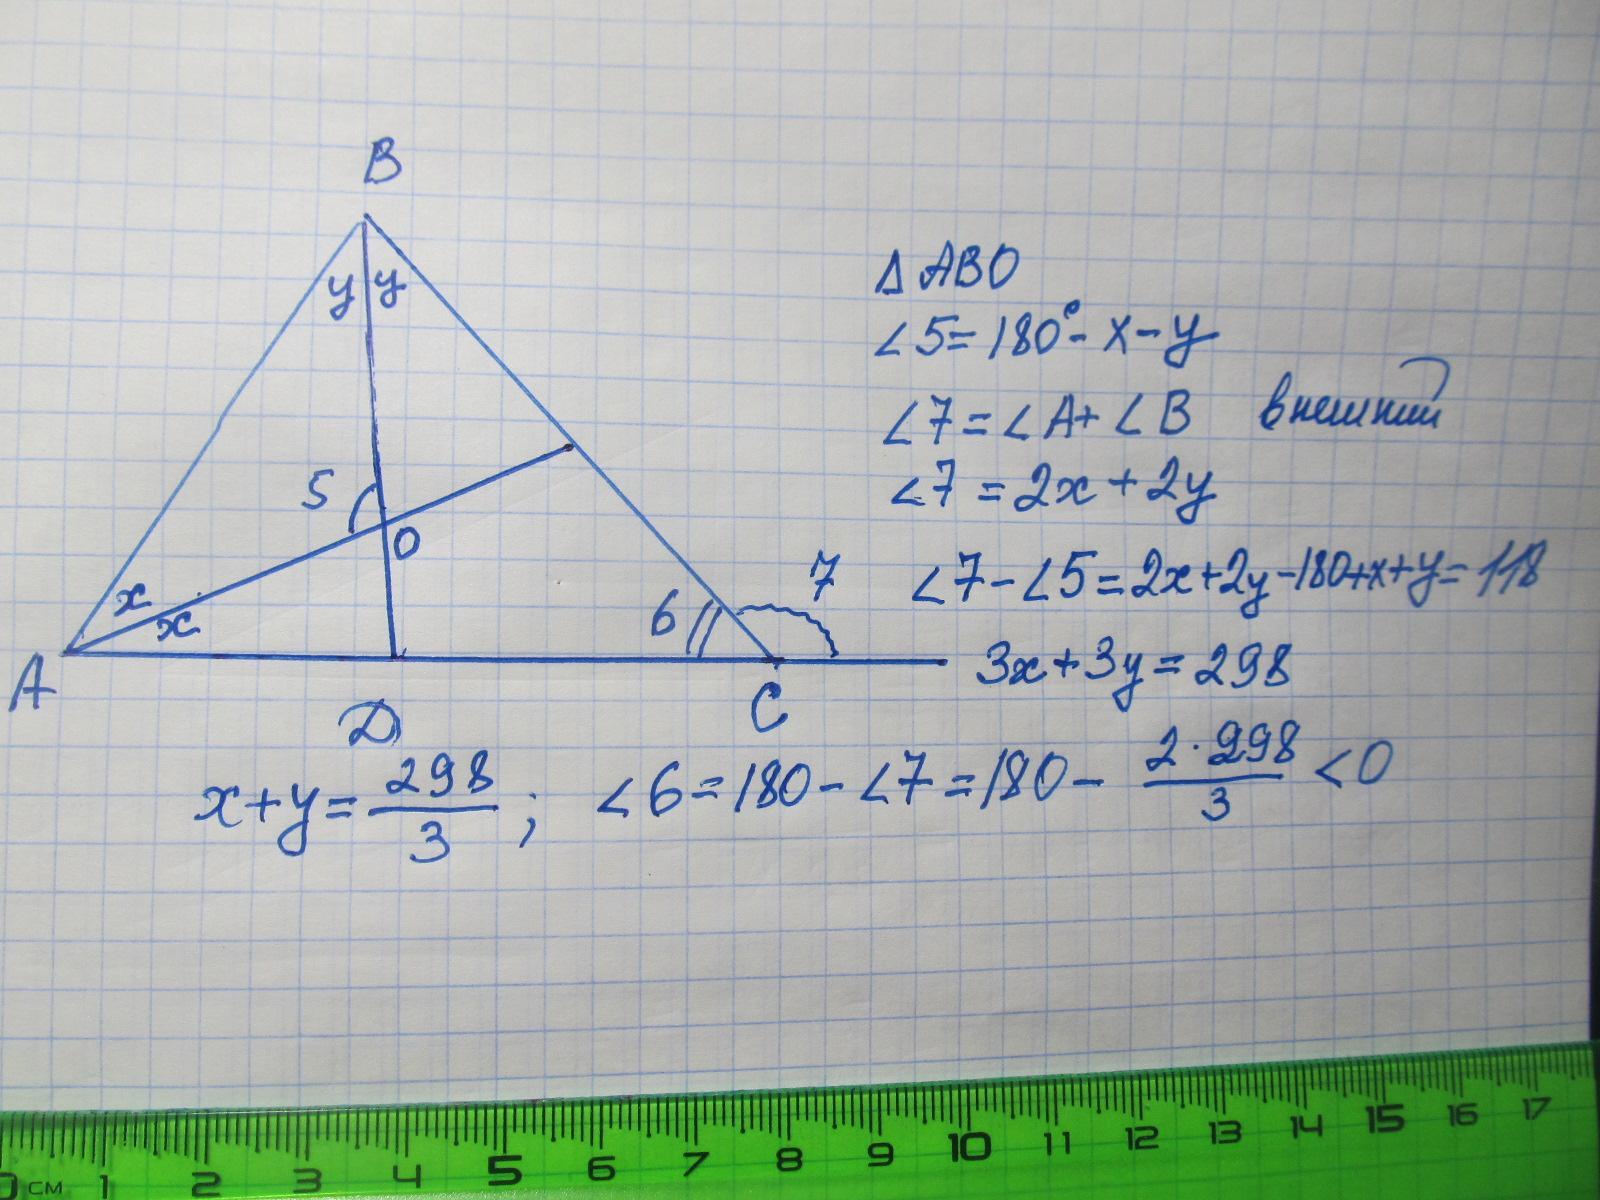 B
y y
5
O
x
x
6
7
A
D
C
Δ ABO
∠5=180°-x-y
∠7=∠A+∠B внешний
∠7=2x+2y
∠7-∠5=2x+2y-180+x+y=118
3x+3y=298
x+y=298/3; ∠6=180-∠7=180-2·298/3<0
0 см 1 2 3 4 5 6 7 8 9 10 11 12 13 14 15 16 17